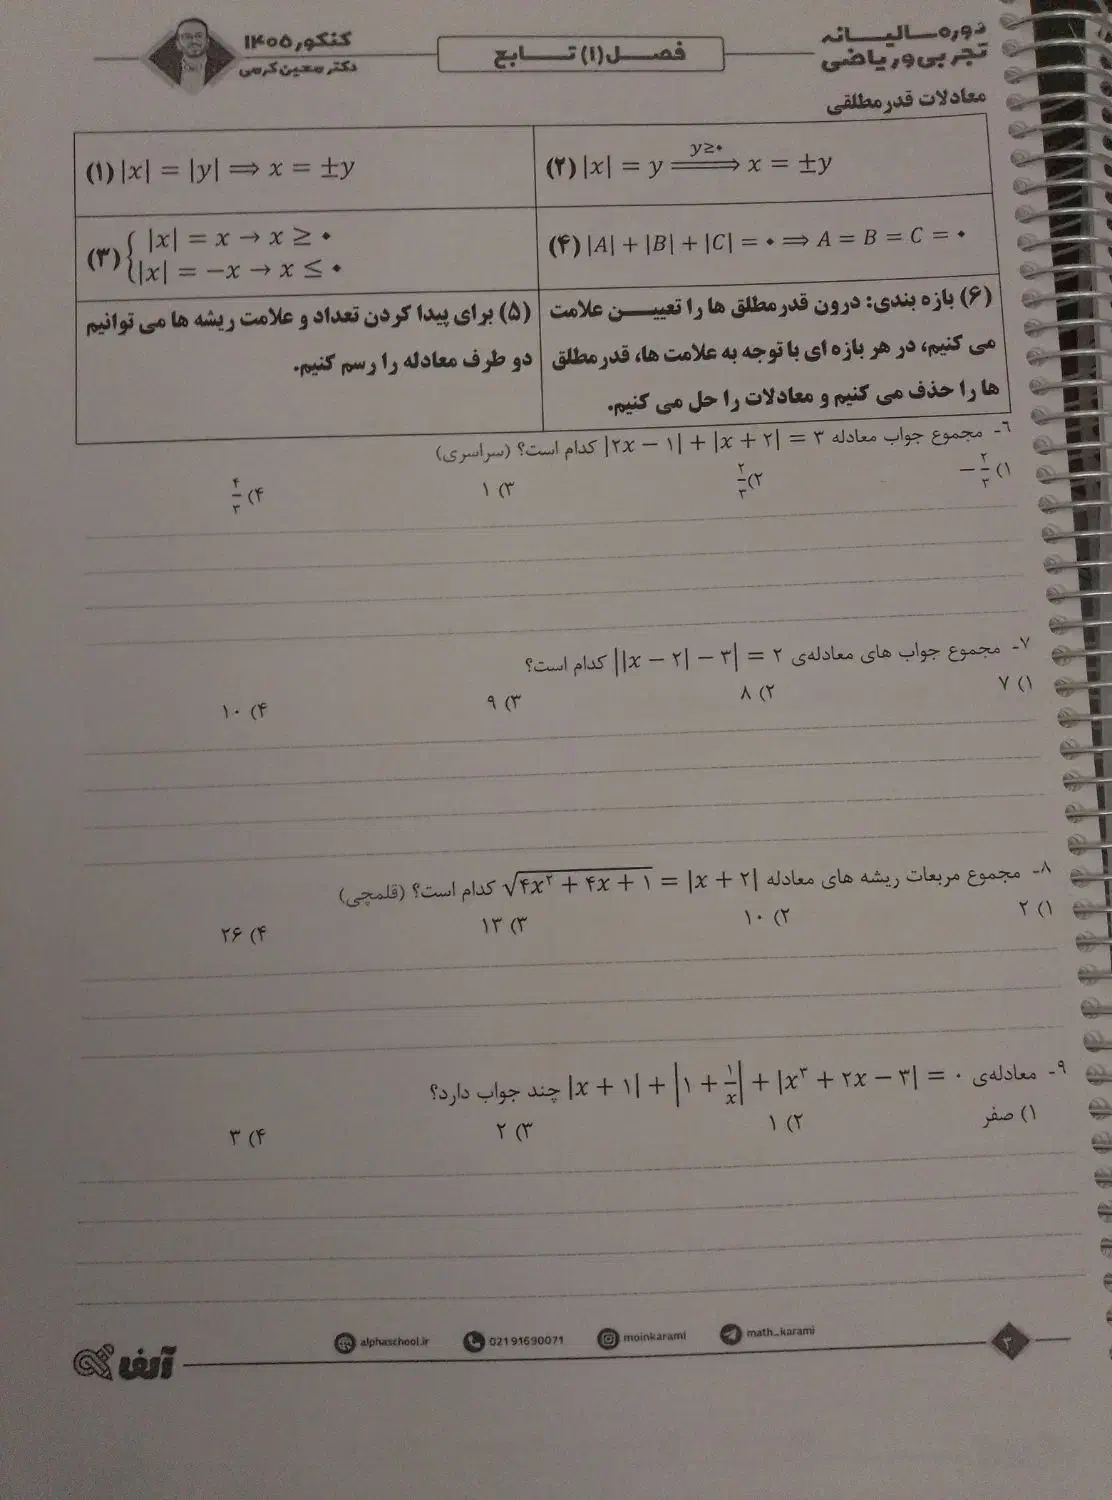 دوره سالیانه
تجربی و ریاضی
فصل (۱) تابع
کنکور ۱۴۰۵
دکتر معین کرمی
معادلات قدرمطلقی
(۱) |x| = |y| ⟹ x = ±y
(۲) |x| = y ⟹ x = ±y
y≥۰
(۳) { |x| = x → x ≥ ۰
|x| = −x → x ≤ ۰
(۴) |A| + |B| + |C| = ۰ ⟹ A = B = C = ۰
(۵) برای پیدا کردن تعداد و علامت ریشه ها می توانیم
دو طرف معادله را رسم کنیم.
(۶) بازه بندی: درون قدرمطلق ها را تعیین علامت
می کنیم، در هر بازه ای با توجه به علامت ها، قدرمطلق
ها را حذف می کنیم و معادلات را حل می کنیم.
۶- مجموع جواب معادله |۲x − ۱| + |x + ۲| = ۳ کدام است؟ (سراسری)
۱) −۲/۳ ۲) ۲/۳ ۳) ۱ ۴) ۴/۳
۷- مجموع جواب های معادله‌ی ||x − ۲| − ۳| = ۲ کدام است؟
۱) ۷ ۲) ۸ ۳) ۹ ۴) ۱۰
۸- مجموع مربعات ریشه های معادله √(۴x² + ۴x + ۱) = |x + ۲| کدام است؟ (قلمچی)
۱) ۲ ۲) ۱۰ ۳) ۱۳ ۴) ۲۶
۹- معادله‌ی |x + ۱| + |۱ + ۱/x| + |x³ + ۲x − ۳| = ۰ چند جواب دارد؟
۱) صفر ۲) ۱ ۳) ۲ ۴) ۳
آلفا alphaschool.ir 02191690071 moinkarami math_karami ۳